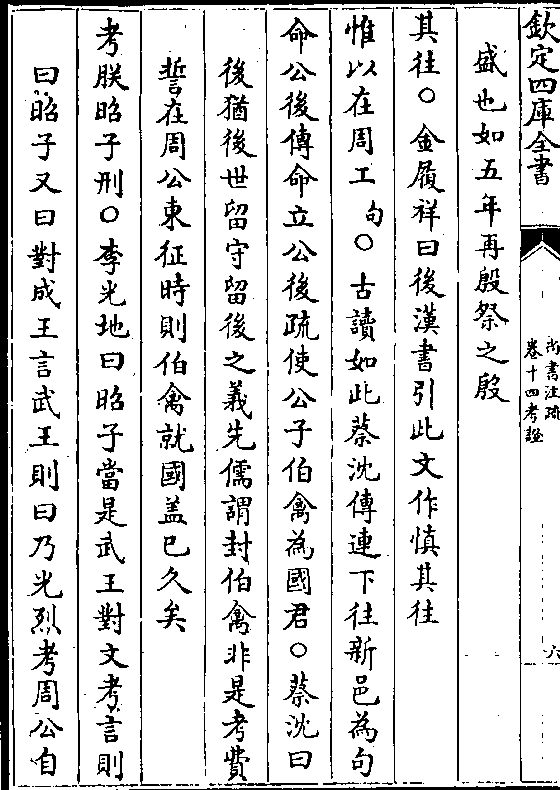 欽定四庫全書
尚書注疏
卷十四考證
六
盛也如五年再殷祭之殷
其往○金履祥曰後漢書引此文作慎其往
惟以在周工句○古讀如此蔡沈傳連下往新邑為句
命公後傳命立公後疏使公子伯禽為國君○蔡沈曰
後猶後世留守留後之義先儒謂封伯禽非是考費
誓在周公東征時則伯禽就國盖已久矣
考朕昭子刑○李光地曰昭子當是武王對文考言則
曰昭子又曰對成王言武王則曰乃光烈考周公自